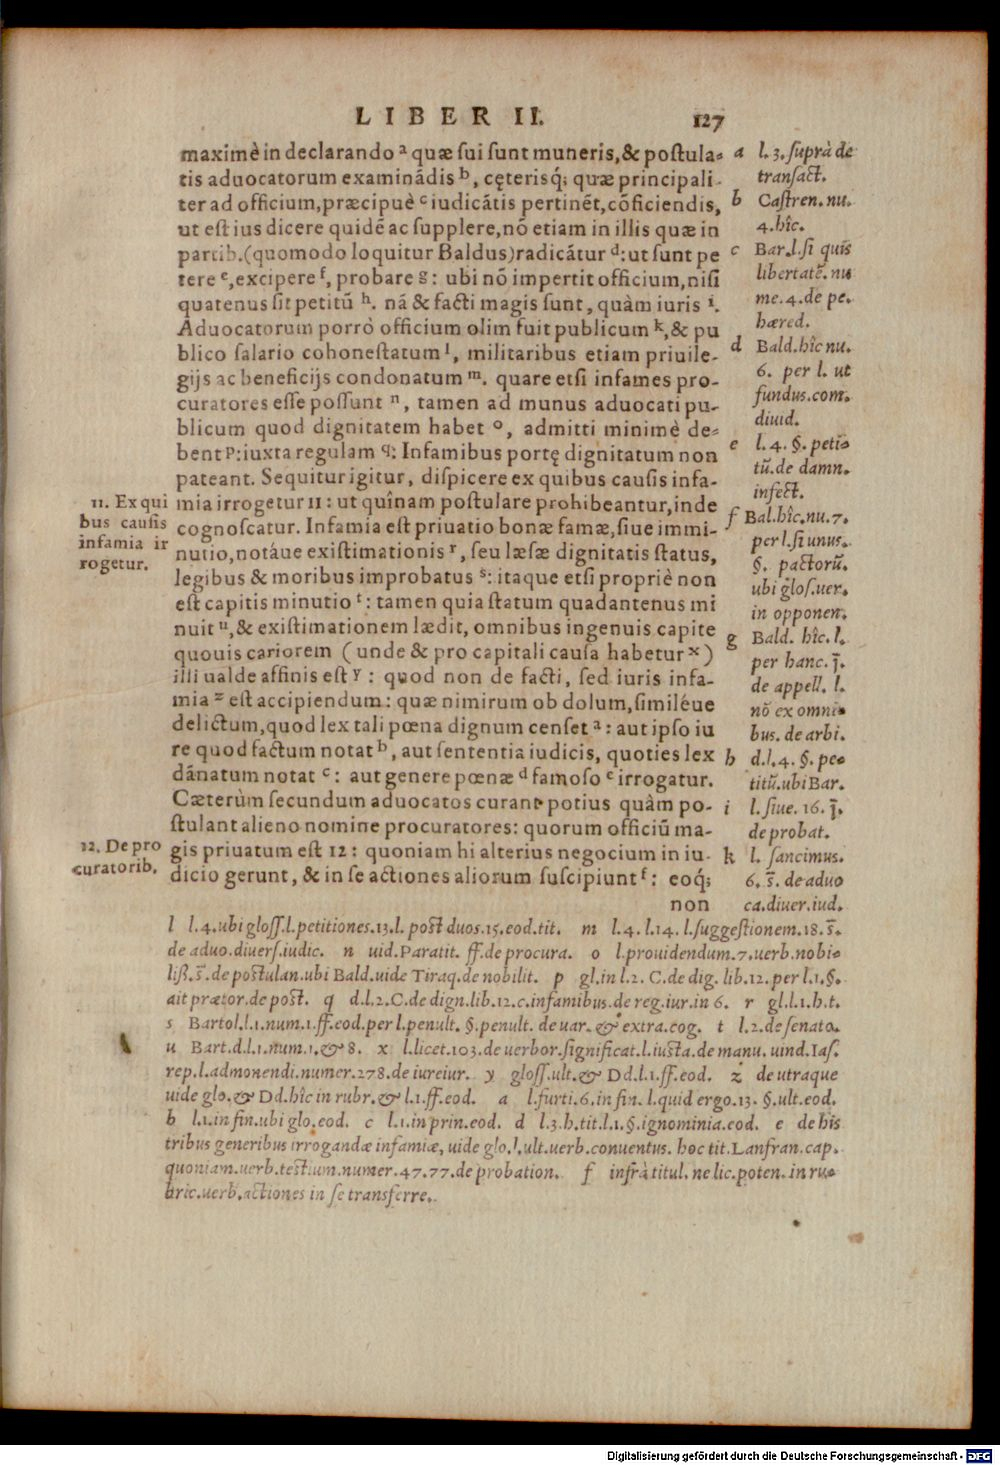 LIBER II. 127
maximè in declarando ª quæ sui sunt muneris,& postula-
tis aduocatorum examinādis ᵇ, cęterisq́; quæ principali-
ter ad officium,præcipuè ᶜ iudicātis pertinēt,cōficiendis,
ut est ius dicere quidē ac supplere,nō etiam in illis quæ in
partib.(quomodo loquitur Baldus)radicātur ᵈ:ut sunt pe
tere ᵉ,excipere ᶠ, probare ᵍ: ubi nō impertit officium,nisi
quatenus sit petitū ʰ. nā & facti magis sunt, quàm iuris ⁱ.
Aduocatorum porrò officium olim fuit publicum ᵏ,& pu
blico salario cohonestatum ˡ, militaribus etiam priuile-
gijs ac beneficijs condonatum ᵐ. quare etsi infames pro-
curatores esse possunt ⁿ, tamen ad munus aduocati pu-
blicum quod dignitatem habet ᵒ, admitti minimè de-
bent ᵖ:iuxta regulam q: Infamibus portę dignitatum non
pateant. Sequitur igitur, dispicere ex quibus causis infa-
mia irrogetur 11: ut quînam postulare prohibeantur,inde
cognoscatur. Infamia est priuatio bonæ famæ,siue immi-
nutio,notáue existimationis ʳ, seu læsæ dignitatis status,
legibus & moribus improbatus ˢ: itaque etsi propriè non
est capitis minutio ᵗ: tamen quia statum quadantenus mi
nuit ᵘ,& existimationem lædit, omnibus ingenuis capite
quouis cariorem (unde & pro capitali causa habetur ˣ)
illi ualde affinis est ʸ: quod non de facti, sed iuris infa-
mia ᶻ est accipiendum: quæ nimirum ob dolum,similéue
delictum,quod lex tali pœna dignum censet ª: aut ipso iu
re quod factum notat ᵇ, aut sententia iudicis, quoties lex
dānatum notat ᶜ: aut genere pœnæ ᵈ famoso ᵉ irrogatur.
Cæterùm secundum aduocatos curant potius quàm po-
stulant alieno nomine procuratores: quorum officiū ma-
gis priuatum est 12: quoniam hi alterius negocium in iu-
dicio gerunt, & in se actiones aliorum suscipiunt ᶠ: eoq́;
non
11. Ex qui
bus causis
infamia ir
rogetur.
12. De pro
curatorib.
a l. 3. suprà de
transact.
b Castren. nu.
4. hîc.
c Bar. l. si quis
libertatē. nu
me. 4. de pe.
hæred.
d Bald. hîc nu.
6. per l. ut
fundus. com.
diuid.
e l. 4. §. peti-
tū. de damn.
infect.
f Bal. hîc. nu. 7.
per l. si unus.
§. pactorū.
ubi glos. uer.
in opponen.
g Bald. hîc. l.
per hanc. j̄.
de appell. l.
nō ex omni-
bus. de arbi.
h d. l. 4. §. pe-
titū. ubi Bar.
i l. siue. 16. j̄.
de probat.
k l. sancimus.
6. s̄. de aduo
ca. diuer. iud.
l l. 4. ubi gloss. l. petitiones. 13. l. post duos. 15. eod. tit. m l. 4. l. 14. l. suggestionem. 18. s̄.
de aduo. diuers. iudic. n uid. Paratit. ff. de procura. o l. prouidendum. 7. uerb. nobi-
liß. s̄. de postulan. ubi Bald. uide Tiraq. de nobilit. p gl. in l. 2. C. de dig. lib. 12. per l. 1. §.
ait prætor. de post. q d. l. 2. C. de dign. lib. 12. c. infamibus. de reg. iur. in 6. r gl. l. 1. h. t.
s Bartol. l. 1. num. 1. ff. eod. per l. penult. §. penult. de uar. & extra. cog. t l. 2. de senato.
u Bart. d. l. 1. num. 1. & 8. x l. licet. 103. de uerbor. significat. l. iusta. de manu. uind. Ias.
rep. l. admonendi. numer. 278. de iureiur. y gloss. ult. & Dd. l. 1. ff. eod. z de utraque
uide glo. & Dd. hîc in rubr. & l. 1. ff. eod. a l. furti. 6. in fin. l. quid ergo. 13. §. ult. eod.
b l. 1. in fin. ubi glo. eod. c l. 1. in prin. eod. d l. 3. h. tit. l. 1. §. ignominia. eod. e de his
tribus generibus irrogandæ infamiæ, uide glo. l. ult. uerb. conuentus. hoc tit. Lanfran. cap.
quoniam. uerb. testium. numer. 47. 77. de probation. f infrà titul. ne lic. poten. in ru-
bric. uerb. actiones in se transferre.
Digitalisierung gefördert durch die Deutsche Forschungsgemeinschaft - DFG